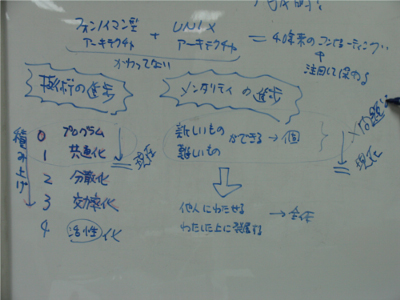 フォンノイマン型 + UNIX = 40年来のコンピューティング
アーキテクチャ アーキテクチャ
かわってない
注目して深める
技術の進歩 メンタリティの進歩
積み上げ
0 プログラム
1 共通化
2 分散化
3 効率化
4 活性化
現在
新しいもの
難しいもの
ができる → 個
現在
他人にわたせる
わたした上に発展する
→ 全体